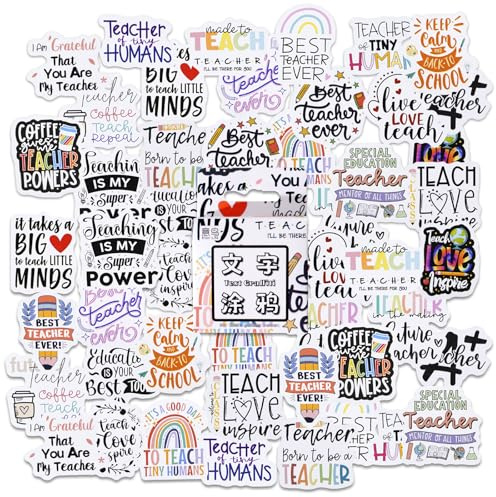 I AM Grateful
That
You Are
My Teacher
Teacher
of tiny
HUMANS
made to
TEACH
TEACHER
I'LL BE THERE FOR YOU
BEST
TEACHER
EVER
TEACHER
OF TINY
HUMAN
KEEP
CaLM
AND
BACK-TO
SCHOOL
BIG
to teach LITTLE
MINDS
teacher
ever
Best
Teacher
ever
live
LOVE
teach
A+
COFFEE
gives
TEACHER
POWERS
Teacher
Coffee
Teach
Repeat
Teaching
IS MY
Super
Born to be a
TEACHER
Best
Teacher
SPECIAL
EDUCATION
Teacher
MENTOR OF ALL THINGS
TEACH
LOVE
Inspire
it takes a
BIG
to teach LITTLE
MINDS
Teaching
IS MY
Super
Power
takes a
You Are
My Teacher
made to
TEACHER
I'LL BE THERE FOR YOU
文字
Text Graffiti
涂鸦
live
LOVE
teach
made to
TEACH
TEACHER
I'LL BE THERE FOR YOU
Teach
Love
Inspire
BEST
TEACHER
EVER!
teacher
ever
Education
IS YOUR
Best
KEEP
CaLM
AND
BACK-TO
SCHOOL
TO TEACH
TINY HUMANS
BEST
TEACHER
EVER!
COFFEE
gives
TEACHER
POWERS
future
Teacher
A+
Teacher
Coffee
Teach
Repeat
That
You Are
My Teacher
Teach
Love
inspire
IT'S A GOOD DAY
TO TEACH
TINY HUMANS
Teacher
of tiny
HUMANS
TEACH
LOVE
inspire
Teacher
Born to be a
TEACHER
TEACHER
OF TINY
HUMAN
SPECIAL
EDUCATION
Teacher
MENTOR OF ALL THINGS